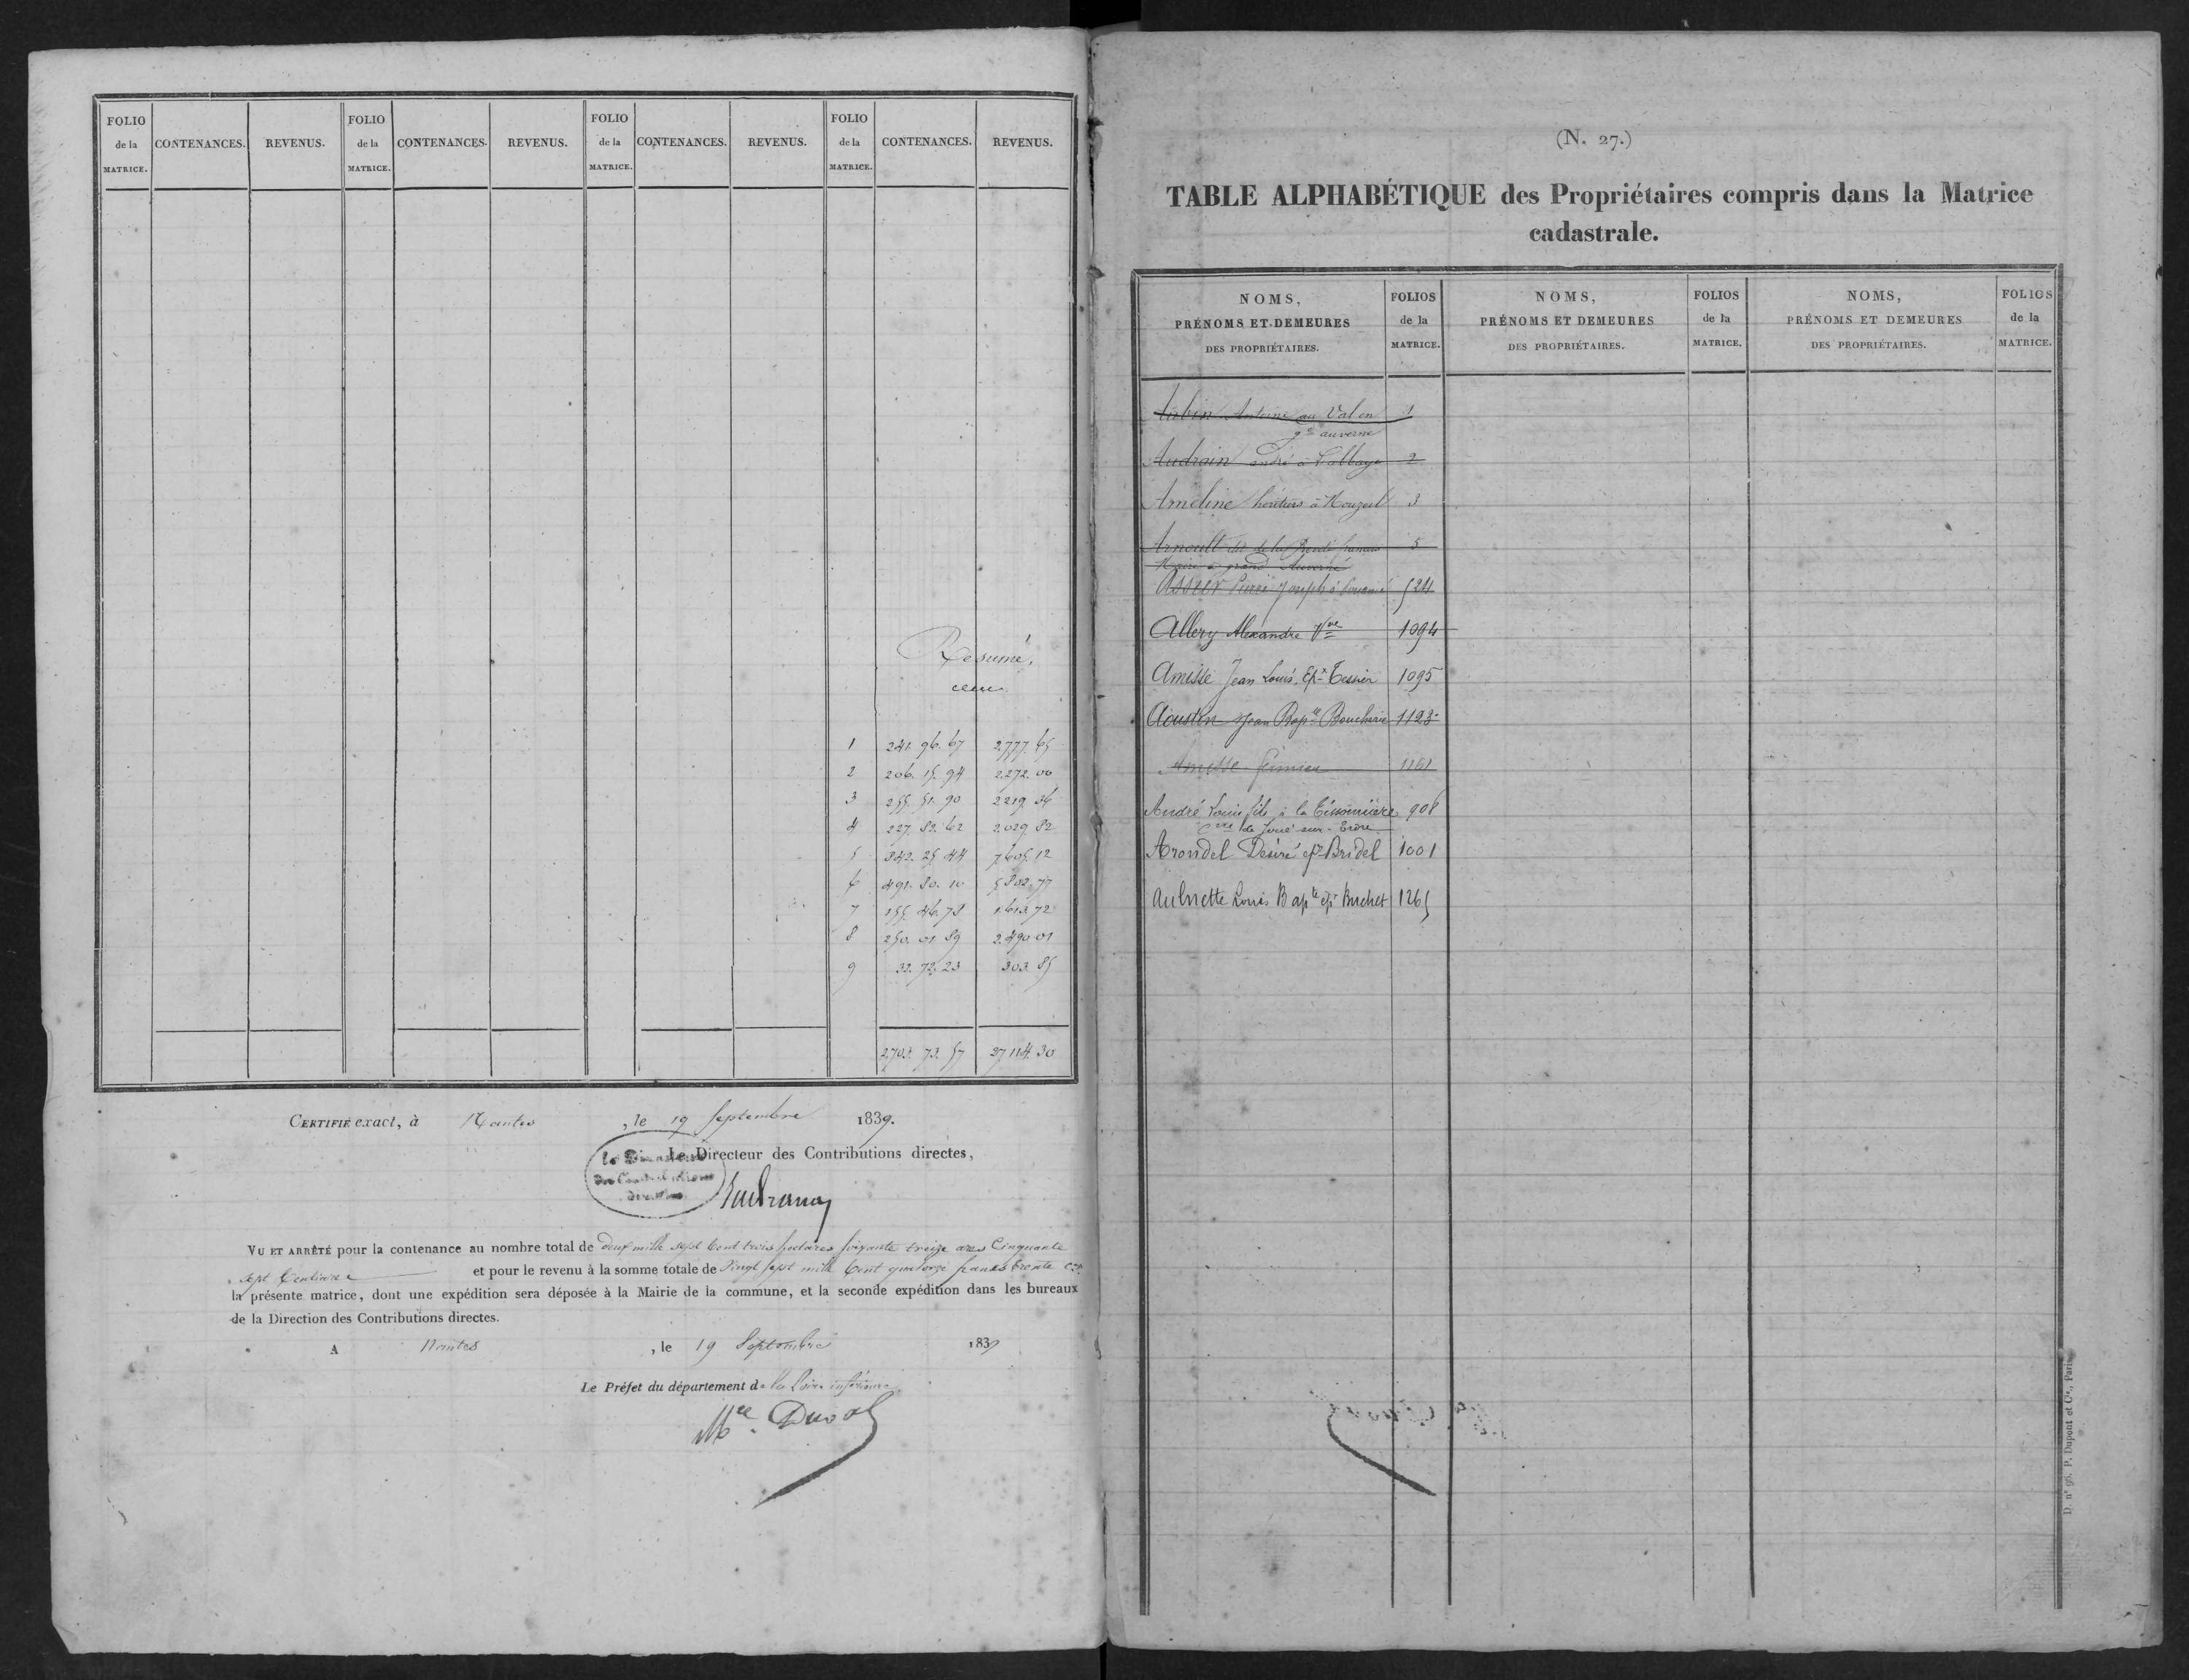 FOLIO de la MATRICE. CONTENANCES. REVENUS. FOLIO de la MATRICE. CONTENANCES. REVENUS. FOLIO de la MATRICE. CONTENANCES. REVENUS. FOLIO de la MATRICE. CONTENANCES. REVENUS.
Résumé.
1 241. 96. 67 2,777. 65
2 206. 15. 94 2,272. 00
3 255. 51. 90 2219. 36
4 227. 82. 62 2,029. 82
5 842. 25. 44 7,605. 12
6 491. 80. 10 5802. 77
7 155. 46. 78 1,613. 72
8 250. 01. 89 2,490. 01
9 32. 72. 23 303. 85
2,703. 73. 57 27,114. 30
CERTIFIÉ exact, à Nantes, le 19 Septembre 1839.
Le Directeur des Contributions directes,
Le Directeur
des Contributions
directes
VU ET ARRÊTÉ pour la contenance au nombre total de deux mille sept Cent trois hectares soixante treize ares Cinquante
sept Centiares et pour le revenu à la somme totale de Vingt sept mille Cent quatorze francs trente c.es
la présente matrice, dont une expédition sera déposée à la Mairie de la commune, et la seconde expédition dans les bureaux
de la Direction des Contributions directes.
A Nantes, le 19 Septembre 1839
Le Préfet du département de la Loire inférieure
Mce. Duval
(N. 27.)
TABLE ALPHABÉTIQUE des Propriétaires compris dans la Matrice
cadastrale.
NOMS, PRÉNOMS ET DEMEURES DES PROPRIÉTAIRES. FOLIOS de la MATRICE. NOMS, PRÉNOMS ET DEMEURES DES PROPRIÉTAIRES. FOLIOS de la MATRICE. NOMS, PRÉNOMS ET DEMEURES DES PROPRIÉTAIRES. FOLIOS de la MATRICE.
Aubin Antoine au Val en 1
gd auverne
Audrain andré à l'abbaye 2
Ameline héritiers à Mouzeil 3
Arnoult dit de la françois 5
Maire à grand Auverné
Assier Pierre Joseph à 524
Allery Alexandre Vve 1094
Amisse Jean Louis. Ep.x Tessier 1095
Aoustin Jean Bapte Boucherie 1123
Amisse 1161
André Louis fils à la Tissonnière 908
cne de Joué-sur-Erdre
Arondel Désiré ep.x Bridel 1001
Aulnette Louis Bapte ep.x Buchet 1265
D. n° 96. P. Dupont et Cie, Paris.